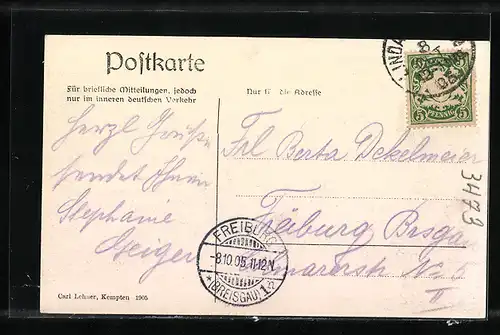 Postkarte
Für briefliche Mitteilungen, jedoch
nur im inneren deutschen Verkehr
Nur f die Adresse
Herzl Grüße
sendet Ihnen
Stephanie
Geiger
Frl Berta Dekelmeier
Freiburg Brsgau
No 5
II
3473
LINDA
5 5
PFENNIG
FREIBURG
-8.10.05.11-12N
*(BREISGAU)1*
Carl Lehner, Kempten 1905